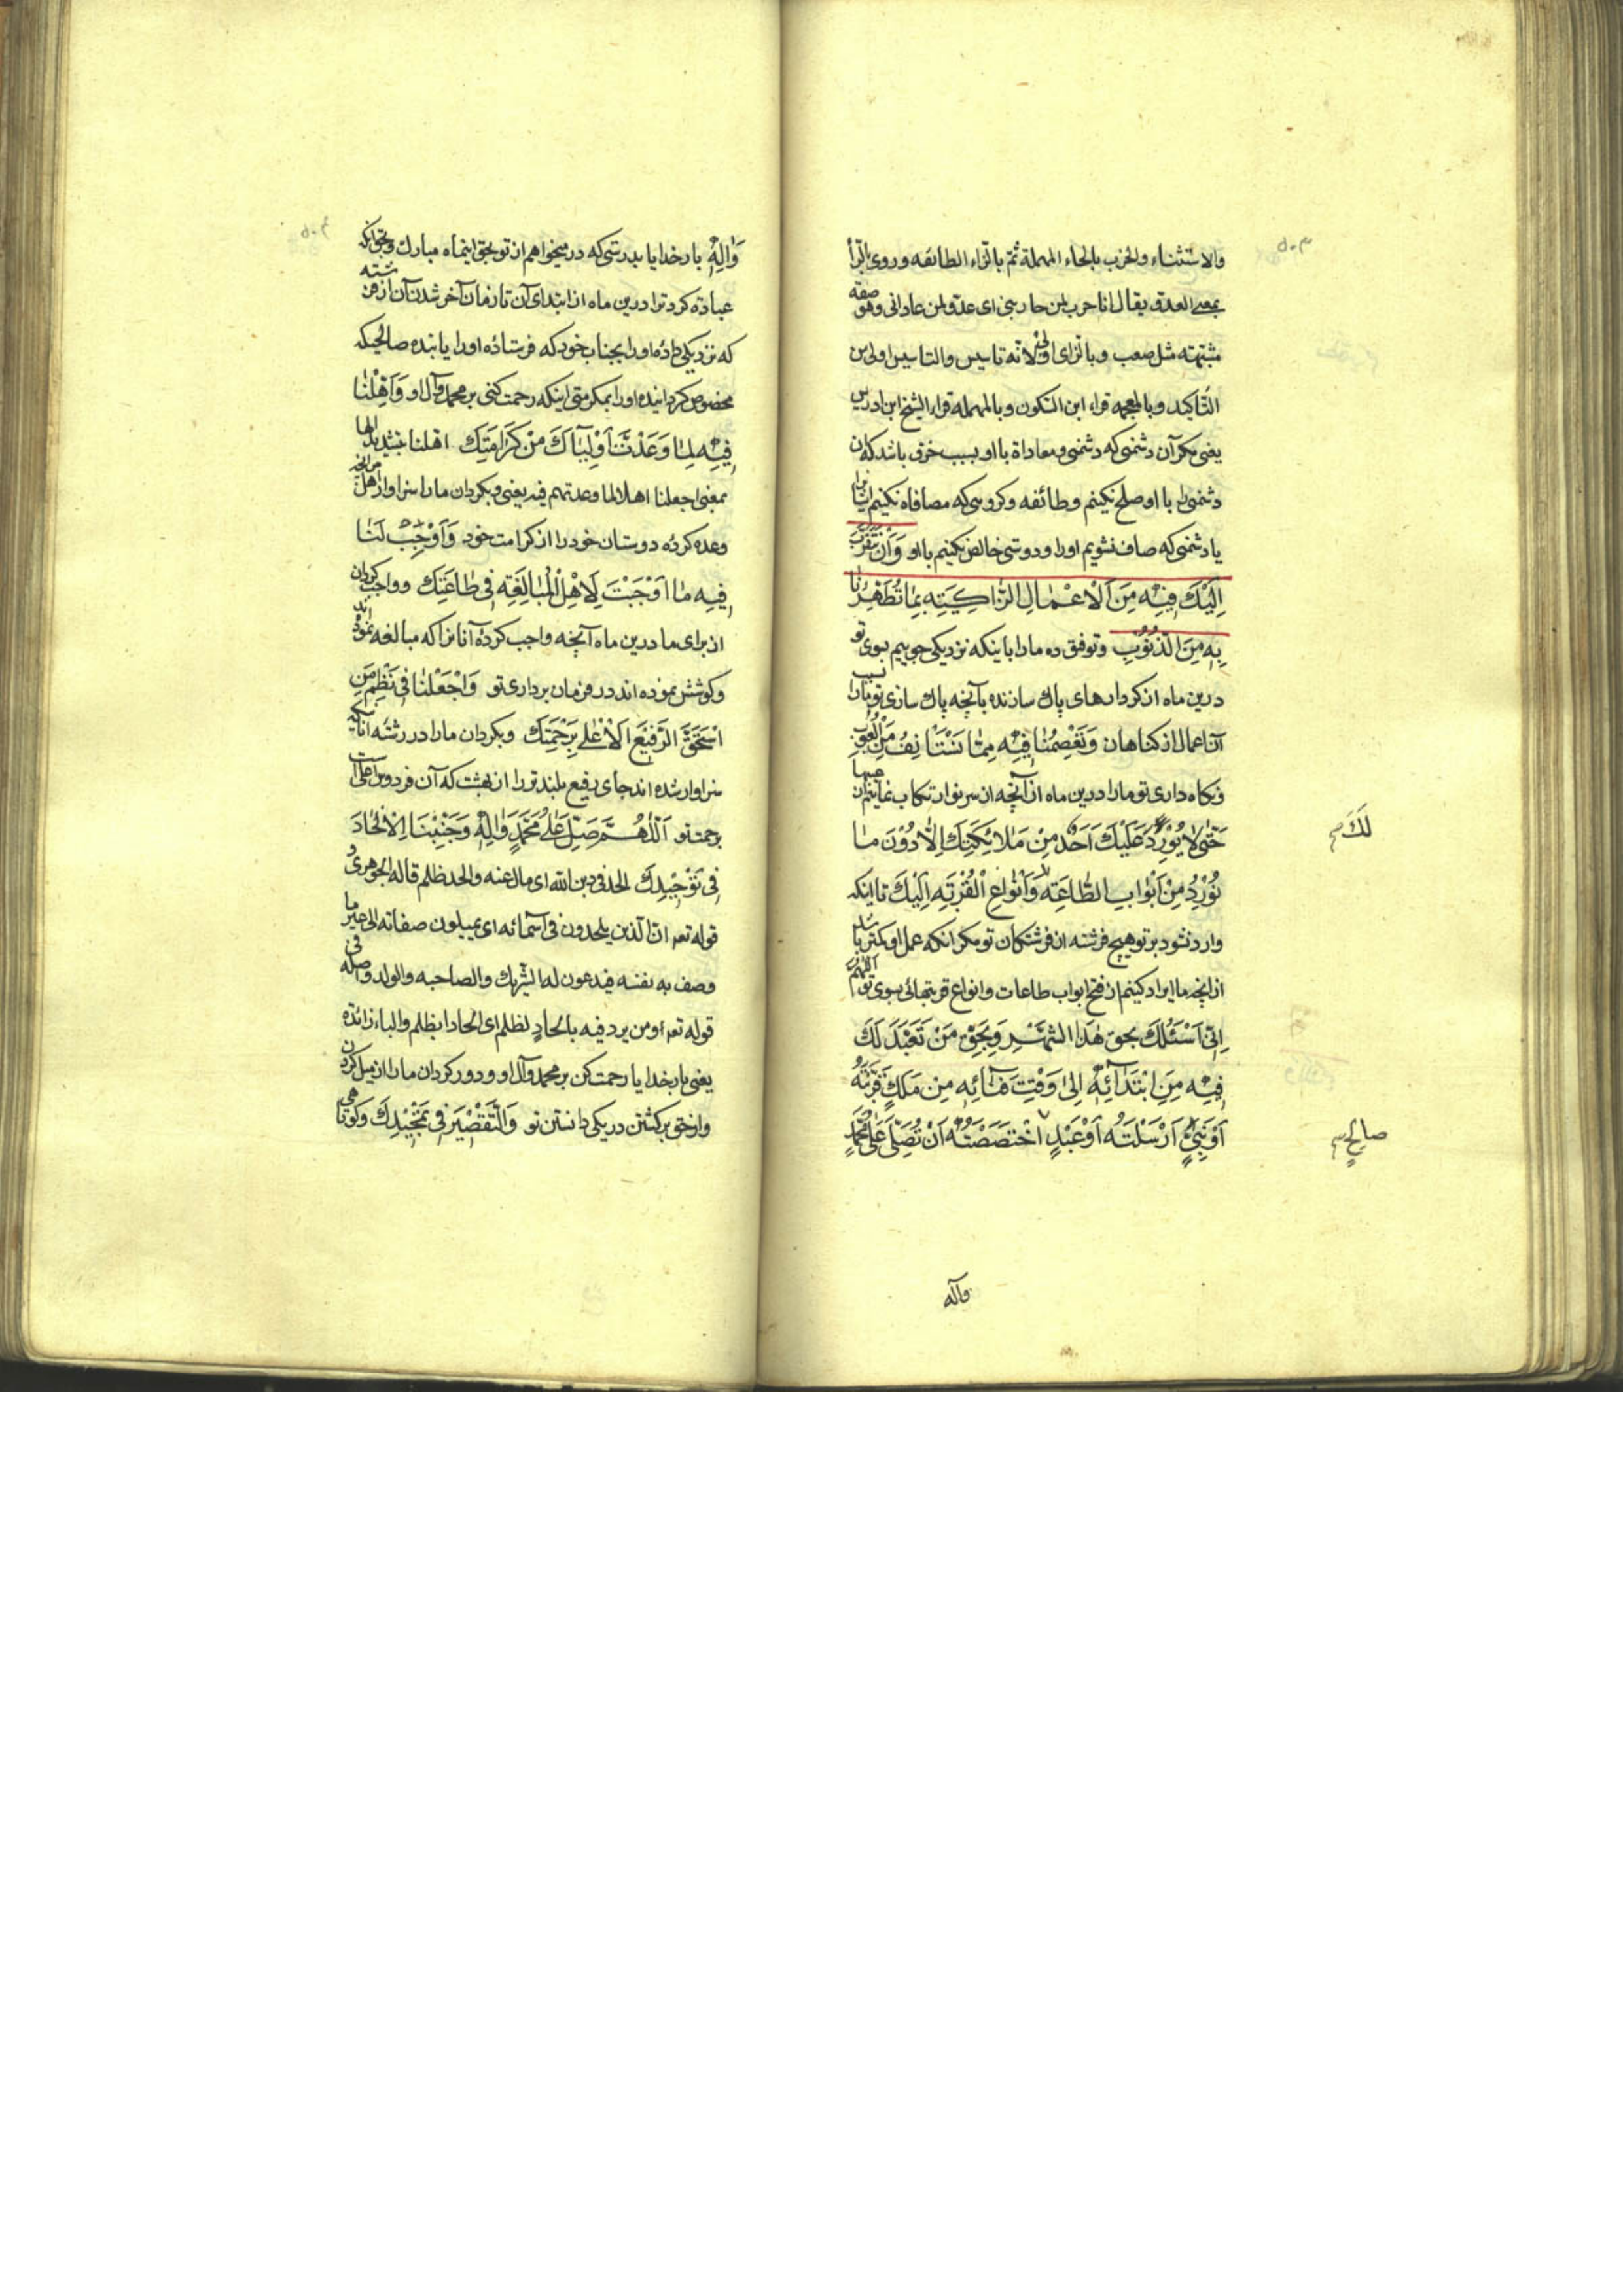 والاستثناء والحزب بالحاء المهملة ثم بالزاء الطائفه وروی بالراء
بمعنی العدو یقال انا حرب لمن حاربنی ای عدو لمن عادانی وهو صفة
مشبهته مثل صعب وبالزای لانه تاسیس والتاسیس اولی من
التأکید وبالمعجمه قراء ابن السکون وبالمهمله قراء الشیخ ابن ادریس
یعنی مکر آن دشمنی که دشمنی ومعاداة با او بسبب خرق باشد که آن
دشمنی را با او صلح نکینم وطائفه وکروهی که مصافاه نکینم
یا دشمنی که صاف نشویم اورا ودوستی خالص نکینم با او وَاَنْ نَتَقَرَّبَ
اِلَیْكَ فِیْهِ مِنَ الْاَعْمَالِ الزَّاکِیَتِهِ بِمَا تُطَهِّرُنَا
بِهِ مِنَ الذُّنُوْبِ وتوفق ده مارا باینکه نزدیکی جوییم بسوی تو
درین ماه از کردارهای پاك سازنده بآنچه پاك سازی تو مارا بسبب
آن اعمال از کناهان وَتَعْصِمُنَا فِیْهِ مِمَّا نَسْتَانِفُ مِنَ الْعُیُوْبِ
ونکاه داری تو مارا درین ماه از آنچه از سر نو ارتکاب نمائیم از عیبها
حَتّٰی لَا یُوْرِدَ عَلَیْكَ اَحَدٌ مِنْ مَلَائِکَتِكَ اِلَّا دُوْنَ مَا
لَكَ م
نُوْرِدُ مِنْ اَبْوَابِ الطَّاعَتِهِ وَاَنْوَاعِ الْقُرْبَتِهِ اِلَیْكَ تا اینکه
وارد نشود بر تو هیچ فرشته از فرشتکان تو مکر آنکه عمل او کمتر باشد
از انچه ما ایراد کینم از فتح ابواب طاعات وانواع قربتهائی بسوی تو اللهم
اِنِّی اَسْئَلُكَ بِحَقِّ هٰذَا الشَّهْرِ وَبِحَقِّ مَنْ تَعَبَّدَ لَكَ
فِیْهِ مِنِ ابْتِدَآئِهِ اِلٰی وَقْتِ فَنَآئِهِ مِنْ مَلَكٍ قَرَّبْتَهُ
اَوْ نَبِیٍّ اَرْسَلْتَهُ اَوْ عَبْدٍ اخْتَصَصْتَهُ اَنْ تُصَلِّیَ عَلٰی مُحَمَّدٍ
صَالِحٍ م
وآله
وَاٰلِهِ بار خدایا بدرستی که در میخواهم از تو بحق اینماه مبارك وبحق آنکه
عبادة کرد ترا درین ماه از ابتدای آن تا زمان آخر شدن آن از فرشته
که نزدیکی داده اورا بجناب خود که فرستاده اورا یا بنده صالحی که
مخصوص کردانیده اورا بمکرمتی اینکه رحمت کنی بر محمد وآل او وَاَهِّلْنَا
فِیْهِ لِمَا وَعَدْتَ اَوْلِیَاَكَ مِنْ کَرَامَتِكَ اهلنا بتشدید الها
بمعنی اجعلنا اهلا لما وعدتهم فیه یعنی وبکردان مارا سزاوار
وعده کرده دوستان خود را از کرامت خود وَاَوْجِبْ لَنَا
فِیْهِ مَا اَوْجَبْتَ لِاَهْلِ الْمُبَالَغَتِهِ فِی طَاعَتِكَ وواجب کردان
از برای ما درین ماه آنچه واجب کرده آنانرا که مبالغه نموده اند
وکوشش نموده اند در فرمان برداری تو وَاجْعَلْنَا فِی نَظْمِ مَنِ
اسْتَحَقَّ الرَّفِیْعَ الْاَعْلٰی بِرَحْمَتِكَ وبکردان مارا در رشته آنانکه
سزاوار شده اند جای رفیع بلند تر را از بهشت که آن فردوس اعلی است
برحمت تو اَللّٰهُمَّ صَلِّ عَلٰی مُحَمَّدٍ وَاٰلِهِ وَجَنِّبْنَا الْاِلْحَادَ
فِی تَوْحِیْدِكَ الحد فی دین الله ای مال عنه والحد ظلم قاله الجوهری و
قوله تعه ان الذین یلحدون فی اسمائه ای یمیلون صفاته الی غیر ما
وصف به نفسه فیدعون له الشریك والصاحبه والولد واصله فی
قوله تعه ومن یرد فیه بالحادٍ بظلم ای الحادا بظلم والباء زائده
یعنی بار خدایا رحمت کن بر محمد وآل او ودور کردان مارا از میل کردن
واز حق برکشتن در یکی دانستن تو وَالتَّقْصِیْرَ فِی تَمْجِیْدِكَ وکوتاهی